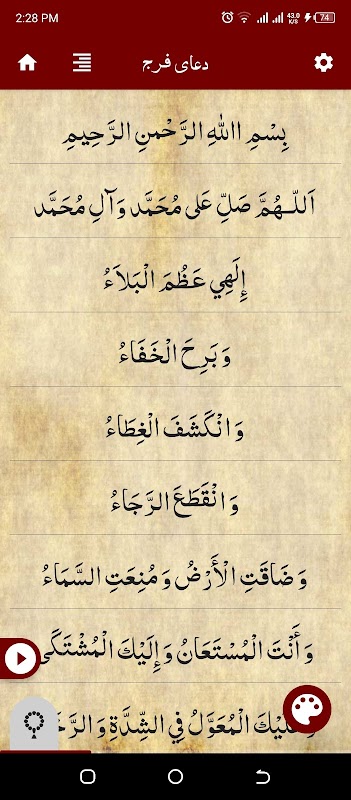 2:28 PM 43.0 K/S 74
دعای فرج
بِسْمِ اللهِ الرَّحْمنِ الرَّحِيمِ
اَللّـهُمَّ صَلِّ عَلى مُحَمَّد وَآلِ مُحَمَّد
إِلَهِي عَظُمَ الْبَلاَءُ
وَ بَرِحَ الْخَفَاءُ
وَ انْكَشَفَ الْغِطَاءُ
وَ انْقَطَعَ الرَّجَاءُ
وَ ضَاقَتِ الْأَرْضُ وَ مُنِعَتِ السَّمَاءُ
وَ أَنْتَ الْمُسْتَعَانُ وَ إِلَيْكَ الْمُشْتَكَى
الْمُعَوَّلُ فِي الشِّدَّةِ وَ